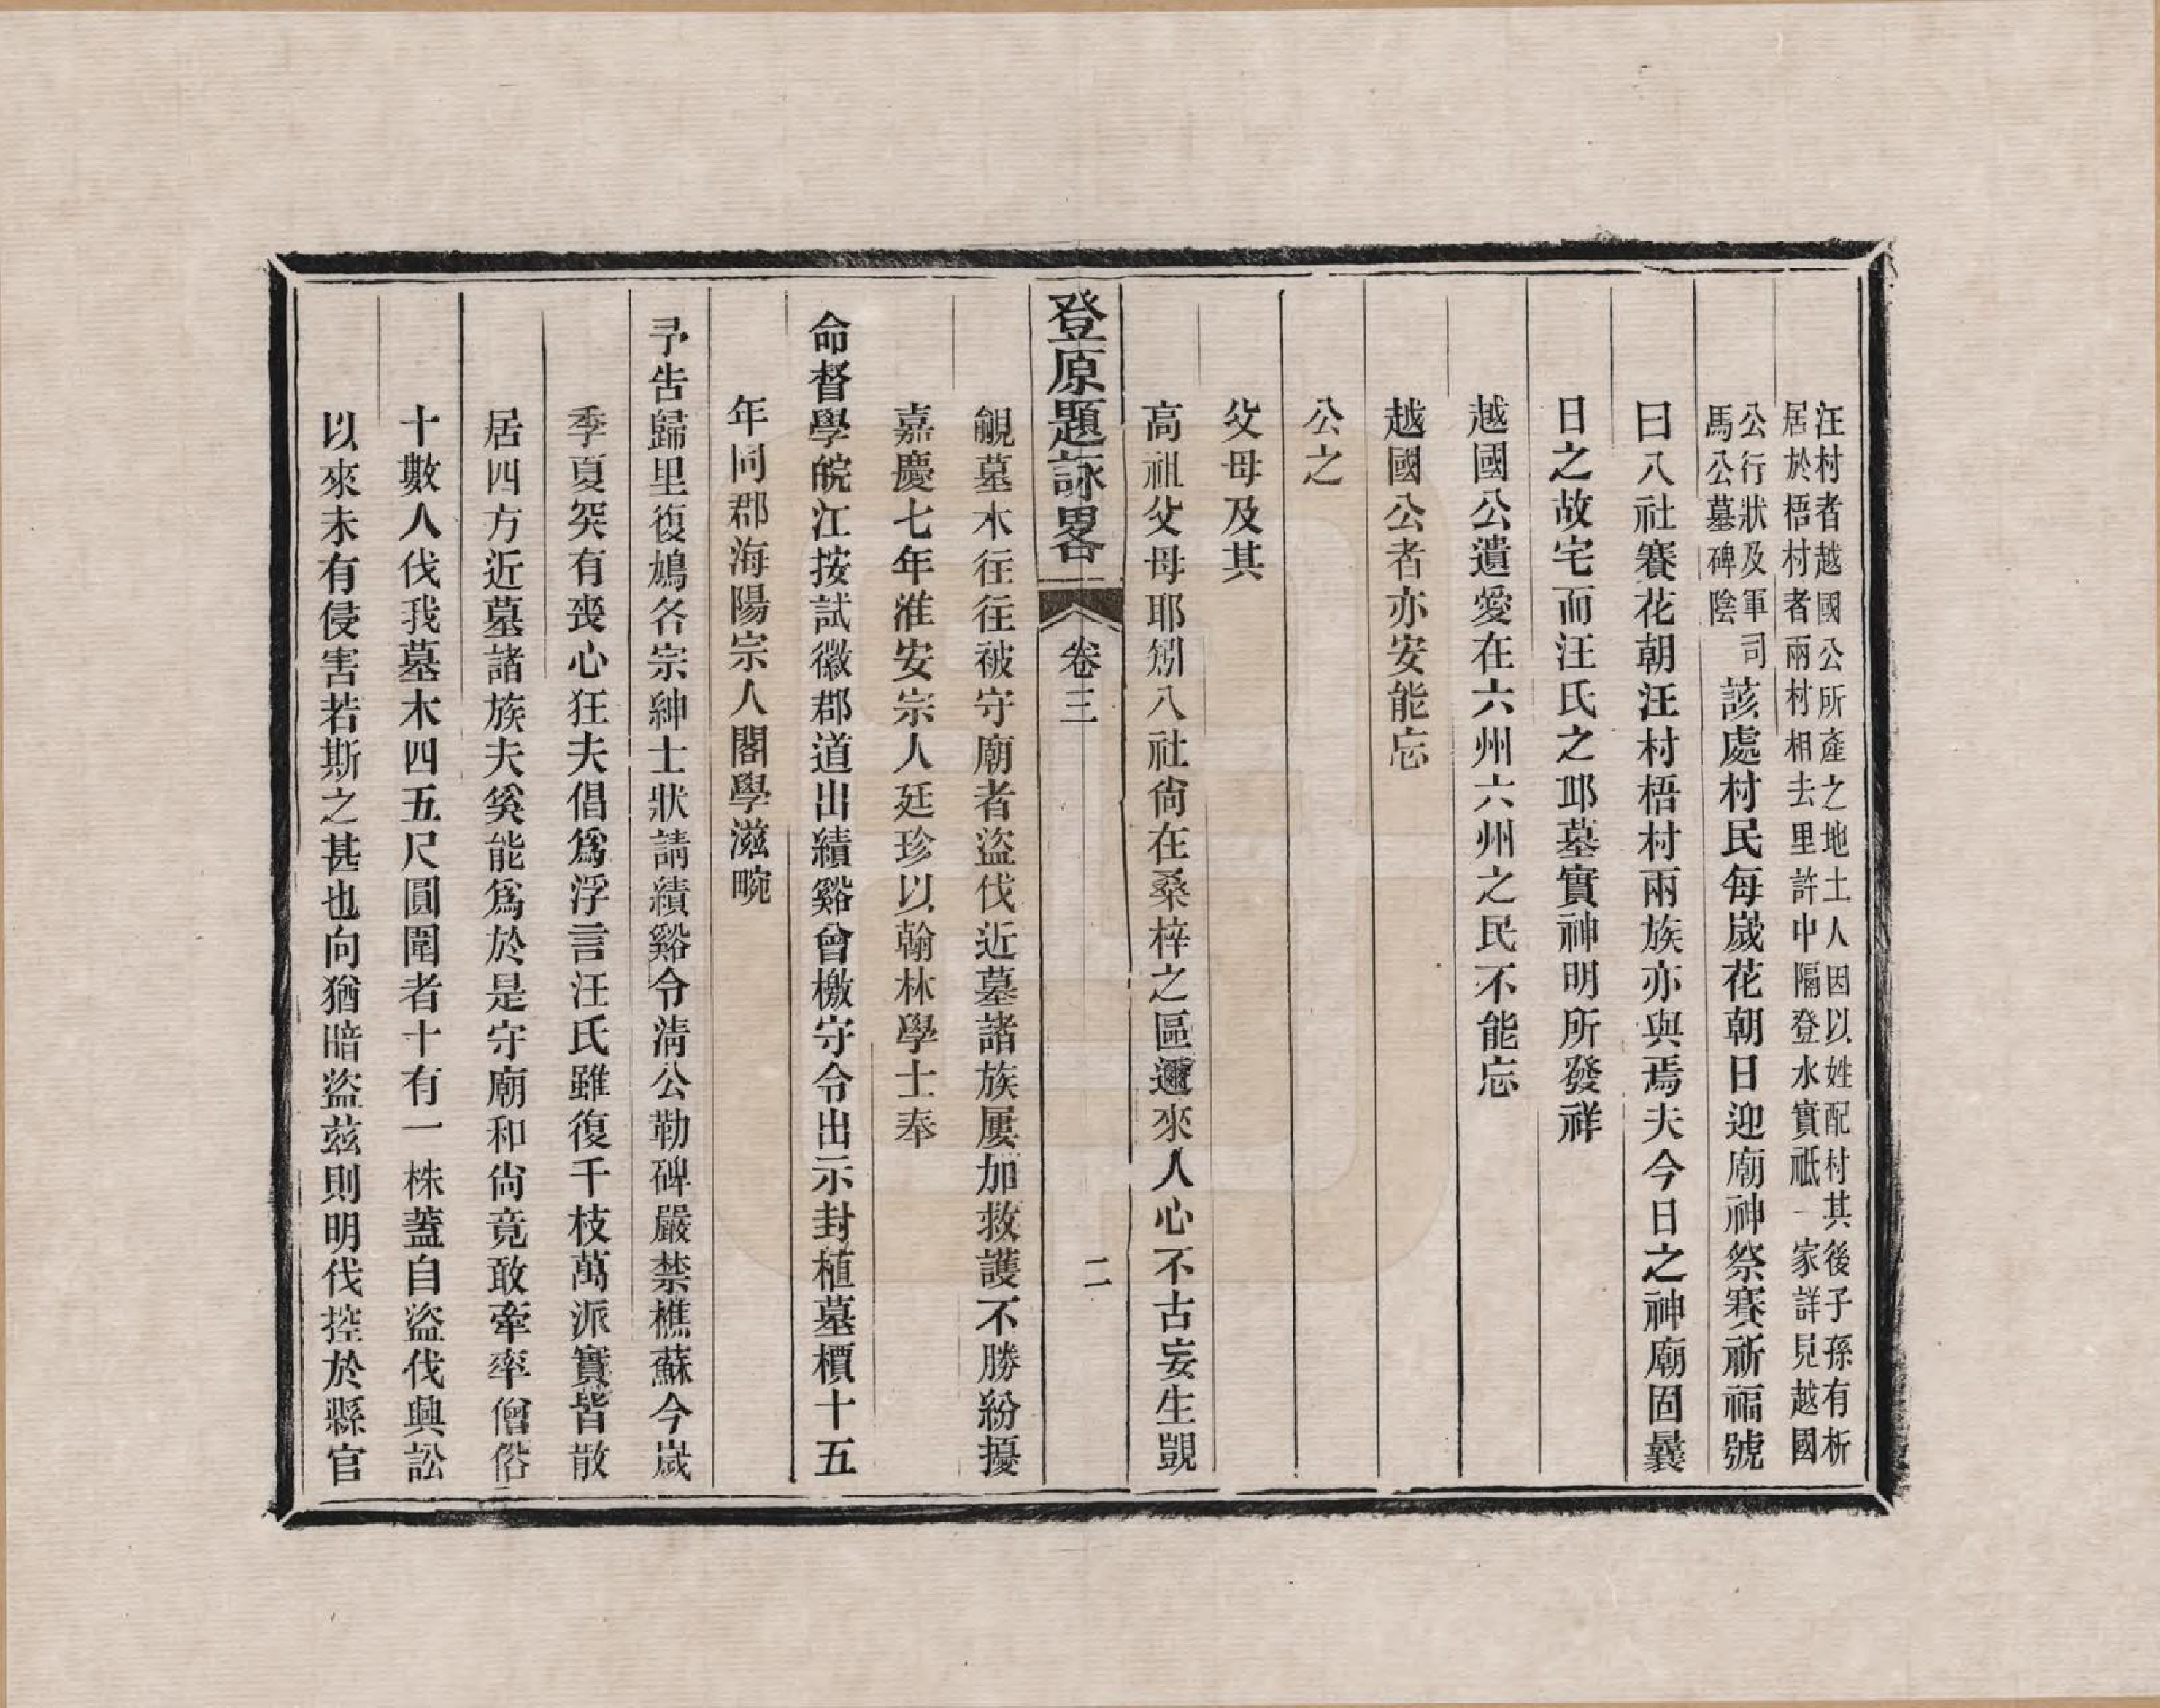 汪村者越國公所產之地土人因以姓配村其後子孫有析
居於梧村者兩村相去里許中隔登水實祇一家詳見越國
公行狀及軍司
馬公墓碑陰
該處村民每歲花朝日迎廟神祭賽祈福號
曰八社賽花朝汪村梧村兩族亦與焉夫今日之神廟固曩
日之故宅而汪氏之邱墓實神明所發祥
越國公遺愛在六州六州之民不能忘
越國公者亦安能忘
公之
父母及其
高祖父母耶矧八社尙在桑梓之區邇來人心不古妄生覬
登原題詠畧
卷三
二
覦墓木往往被守廟者盜伐近墓諸族屢加救護不勝紛擾
嘉慶七年淮安宗人廷珍以翰林學士奉
命督學皖江按試徽郡道出績谿曾檄守令出示封植墓檟十五
年同郡海陽宗人閣學滋畹
予告歸里復鳩各宗紳士狀請績谿令淸公勒碑嚴禁樵蘇今歲
季夏突有喪心狂夫倡爲浮言汪氏雖復千枝萬派實皆散
居四方近墓諸族夫奚能爲於是守廟和尙竟敢牽率僧俗
十數人伐我墓木四五尺圓圍者十有一株蓋自盜伐興訟
以來未有侵害若斯之甚也向猶暗盜茲則明伐控於縣官